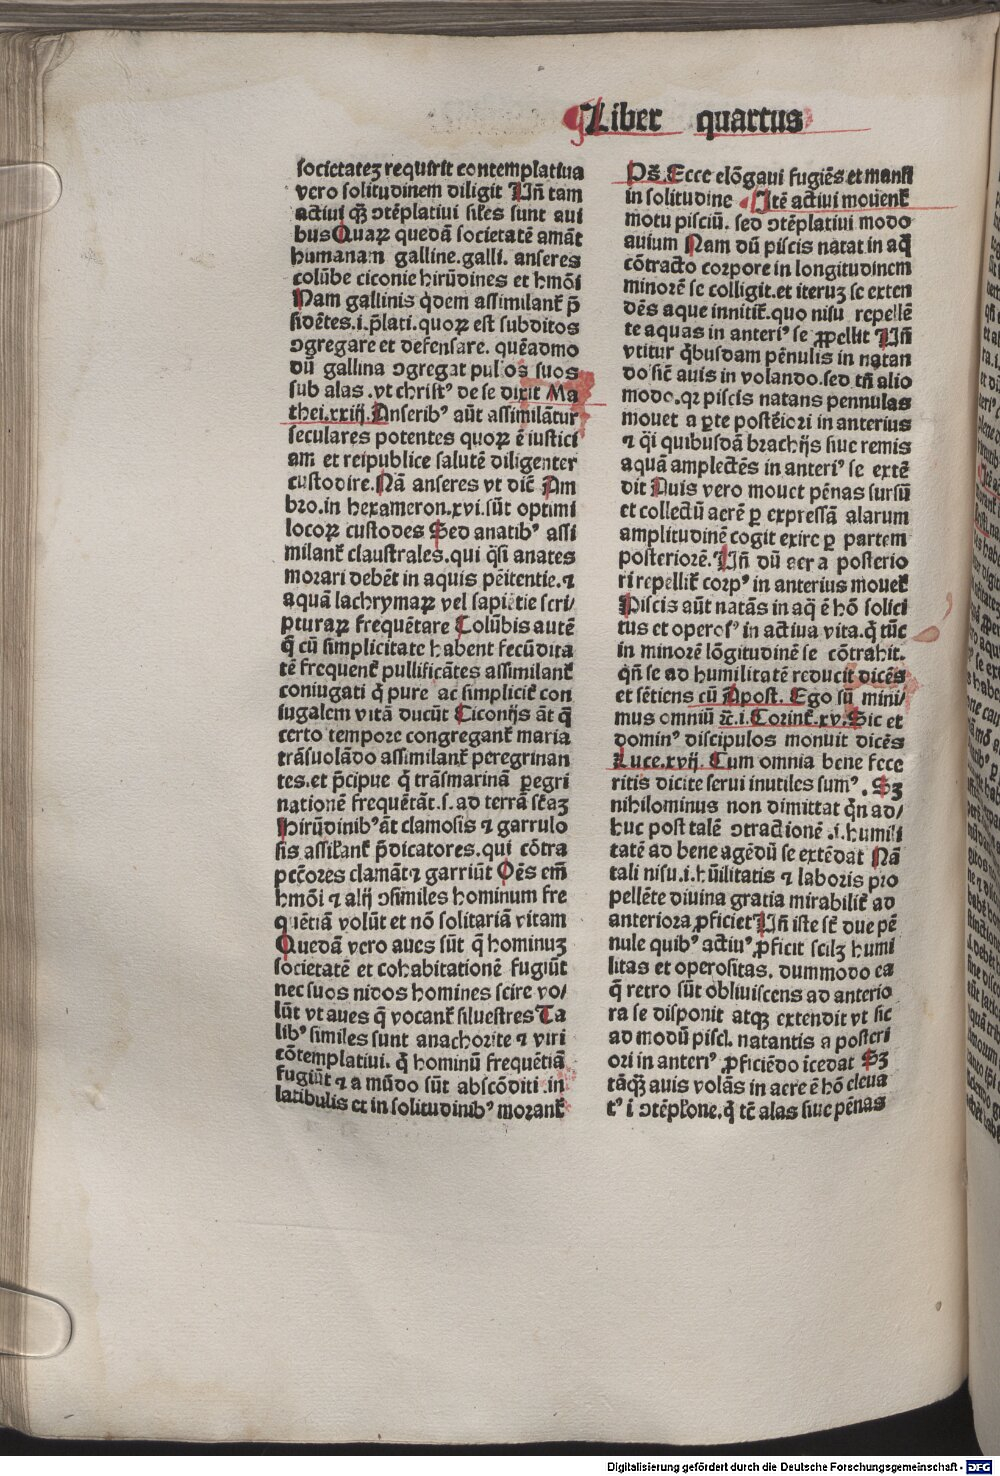 Liber quartus
societateʒ requirit contemplatiua
vero solitudinem diligit Uñ tam
actiui qꝫ ↄtẽplatiui siẽs sunt aui
bus Quaꝝ quedã societatẽ amãt
humanam galline.galli. anseres
colũbe ciconie hirũdines et hmõi
Nam gallinis q̇dem assimilanť p̃
sidẽtes.i.p̃lati.quoꝝ est subditos
ↄgregare et defensare. quẽadmo
dũ gallina ↄgregat pullos suos
sub alas .vt christꝰ de se dixit Ma
thei.xxiij. Anseribꝰ aũt assimilãtur
seculares potentes quoꝝ ẽ iustici
am et reipublice salutẽ diligenter
custodire. Nã anseres vt dic̃ Am
bro.in hexameron.xvi.sũt optimi
locoꝝ custodes Sed anatibꝰ assi
milanť claustrales.qui q̃si anates
morari debẽt in aquis pẽitentie.⁊
aquã lachrymaꝝ vel sapiẽtie scri/
pturaꝝ frequẽtare Colũbis autẽ
q̃ cũ simplicitate habent fecũdita
tẽ frequenť pullificãtes assimilanť
coniugati q̃ pure ac simpliciť con
iugalem vitã ducũt Ciconijs ãt q̃
certo tempore congreganť maria
trãsuolãdo assimilanť peregrinan
tes.et p̃cipue q̃ trãsmarinã ꝑegri
nationẽ frequẽtãt.s. ad terrã sc̃aʒ
Hirũdinibꝰ ãt clamosis ⁊ garrulo
sis assiľanť p̃dicatores.qui cõtra
pctõres clamãt ⁊ garriũt Oẽs em̃
hmõi ⁊ alij ↄsimiles hominum fre
quẽtiã volũt et nõ solitariã vitam
Quedã vero aues sũt q̃ hominuʒ
societatẽ et cohabitationẽ fugiũt
nec suos nidos homines scire vo/
lũt vt aues q̃ vocanť siluestres Ta
libꝰ similes sunt anachorite ⁊ viri
cõtemplatiui. q̃ hominũ frequẽtiã
fugiũt ⁊ a mũdo sũt abscõditi in
latibulis et in solitudinibꝰ moranť
Ps̃. Ecce elõgaui fugiẽs et mansi
in solitudine Itẽ actiui mouenť
motu pisciũ. sed ↄtẽplatiui modo
auium Nam dũ piscis natat in aq̃
cõtracto corpore in longitudinem
minorẽ se colligit.et iteruʒ se exten
dẽs aque innitiť.quo nisu repellẽ
te aquas in anteriꝰ se ꝓpellit Uñ
vtitur q̇busdam pẽnulis in natan
do sic̃ auis in volando.sed tñ alio
modo.qꝛ piscis natans pennulas
mouet a ꝑte postẽiori in anterius
⁊ q̃i quibusdã brachijs siue remis
aquã amplectẽs in anteriꝰ se extẽ
dit Auis vero mouet pẽnas sursũ
et collectũ aerẽ ꝑ expressã alarum
amplitudinẽ cogit exire ꝑ partem
posteriorẽ. Uñ dũ aer a posterio
ri repelliť corpꝰ in anterius moueť
Piscis aũt natãs in aq̃ ẽ hõ solici
tus et operosꝰ in actiua vita.q̃ tũc
in minorẽ lõgitudinẽ se cõtrahit.
qñ se ad humilitatẽ reducit dicẽs
et sẽtiens cũ Apost. Ego sũ mini/
mus omniũ ⁊c̃.i.Corinť.xv. Sic et
dominꝰ discipulos monuit dicẽs
Luce.xvij. Cum omnia bene fece
ritis dicite serui inutiles sumꝰ. Sʒ
nihilominus non dimittat q̃n ad/
huc post talẽ ↄtractionẽ .i.humili
tatẽ ad bene agẽdũ se extẽdat Nã
tali nisu.i.hũilitatis ⁊ laboris pro
pellẽte diuina gratia mirabiliť ad
anteriora ꝓficiet Uñ iste sť due pẽ
nule quibꝰ actiuꝰ ꝓficit scilʒ humi
litas et operositas. dummodo ea
q̃ retro sũt obliuiscens ad anterio
ra se disponit atqꝫ extendit vt sic
ad modũ pisci. natantis a posteri
ori in anteriꝰ ꝓficiẽdo ĩcedat Sʒ
tãqꝫ auis volãs in aere ẽ hõ eleua
tꝰ ĩ ↄtẽpľone.q̃ tẽ alas siue pẽnas
Digitalisierung gefördert durch die Deutsche Forschungsgemeinschaft - DFG